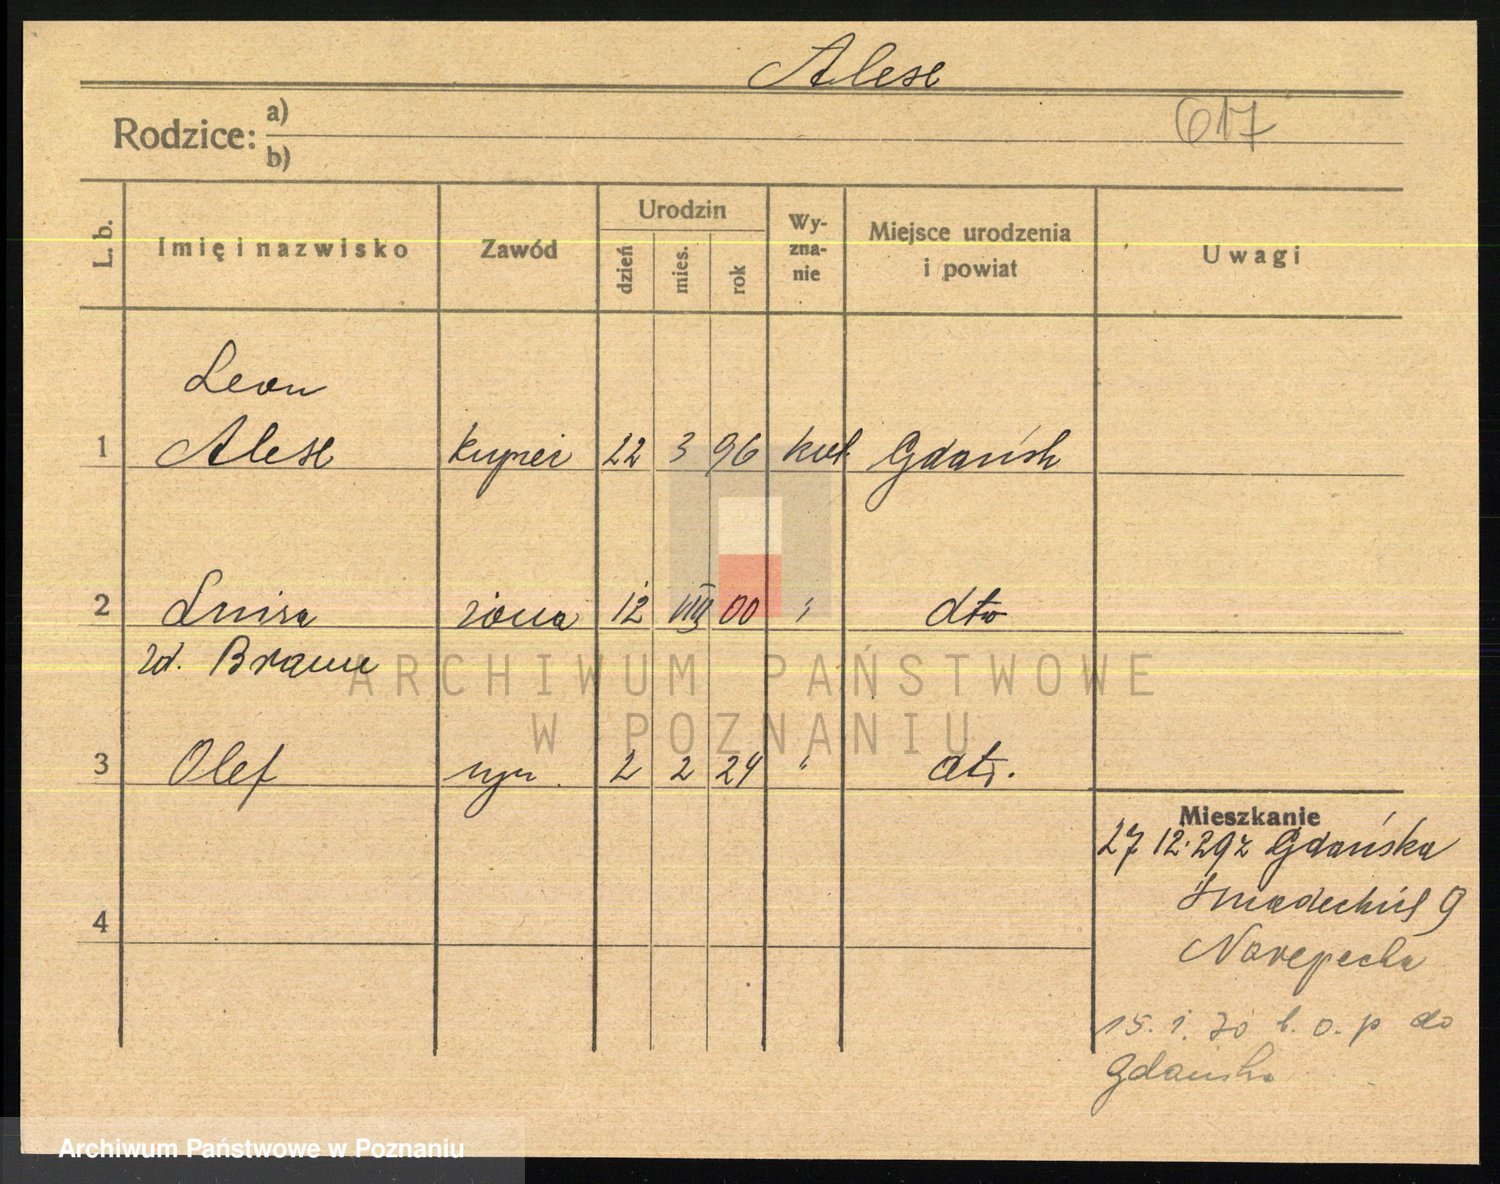 Alese
617
Rodzice: a)
b)
L. b.
Imię i nazwisko
Zawód
Urodzin
dzień
mies.
rok
Wy-
zna-
nie
Miejsce urodzenia
i powiat
Uwagi
Leon
1 Alese kupiec 22 3 96 kat. Gdańsk
2 Luisa żona 12 VIII 00 " dto
zd. Braun
3 Olef syn 2 2 24 " dto.
4
Mieszkanie
27 12.29 z Gdańska
Śniadeckich 9
15. 1. 30 b. o. p do
Gdańska
ARCHIWUM PAŃSTWOWE
W POZNANIU
Archiwum Państwowe w Poznaniu